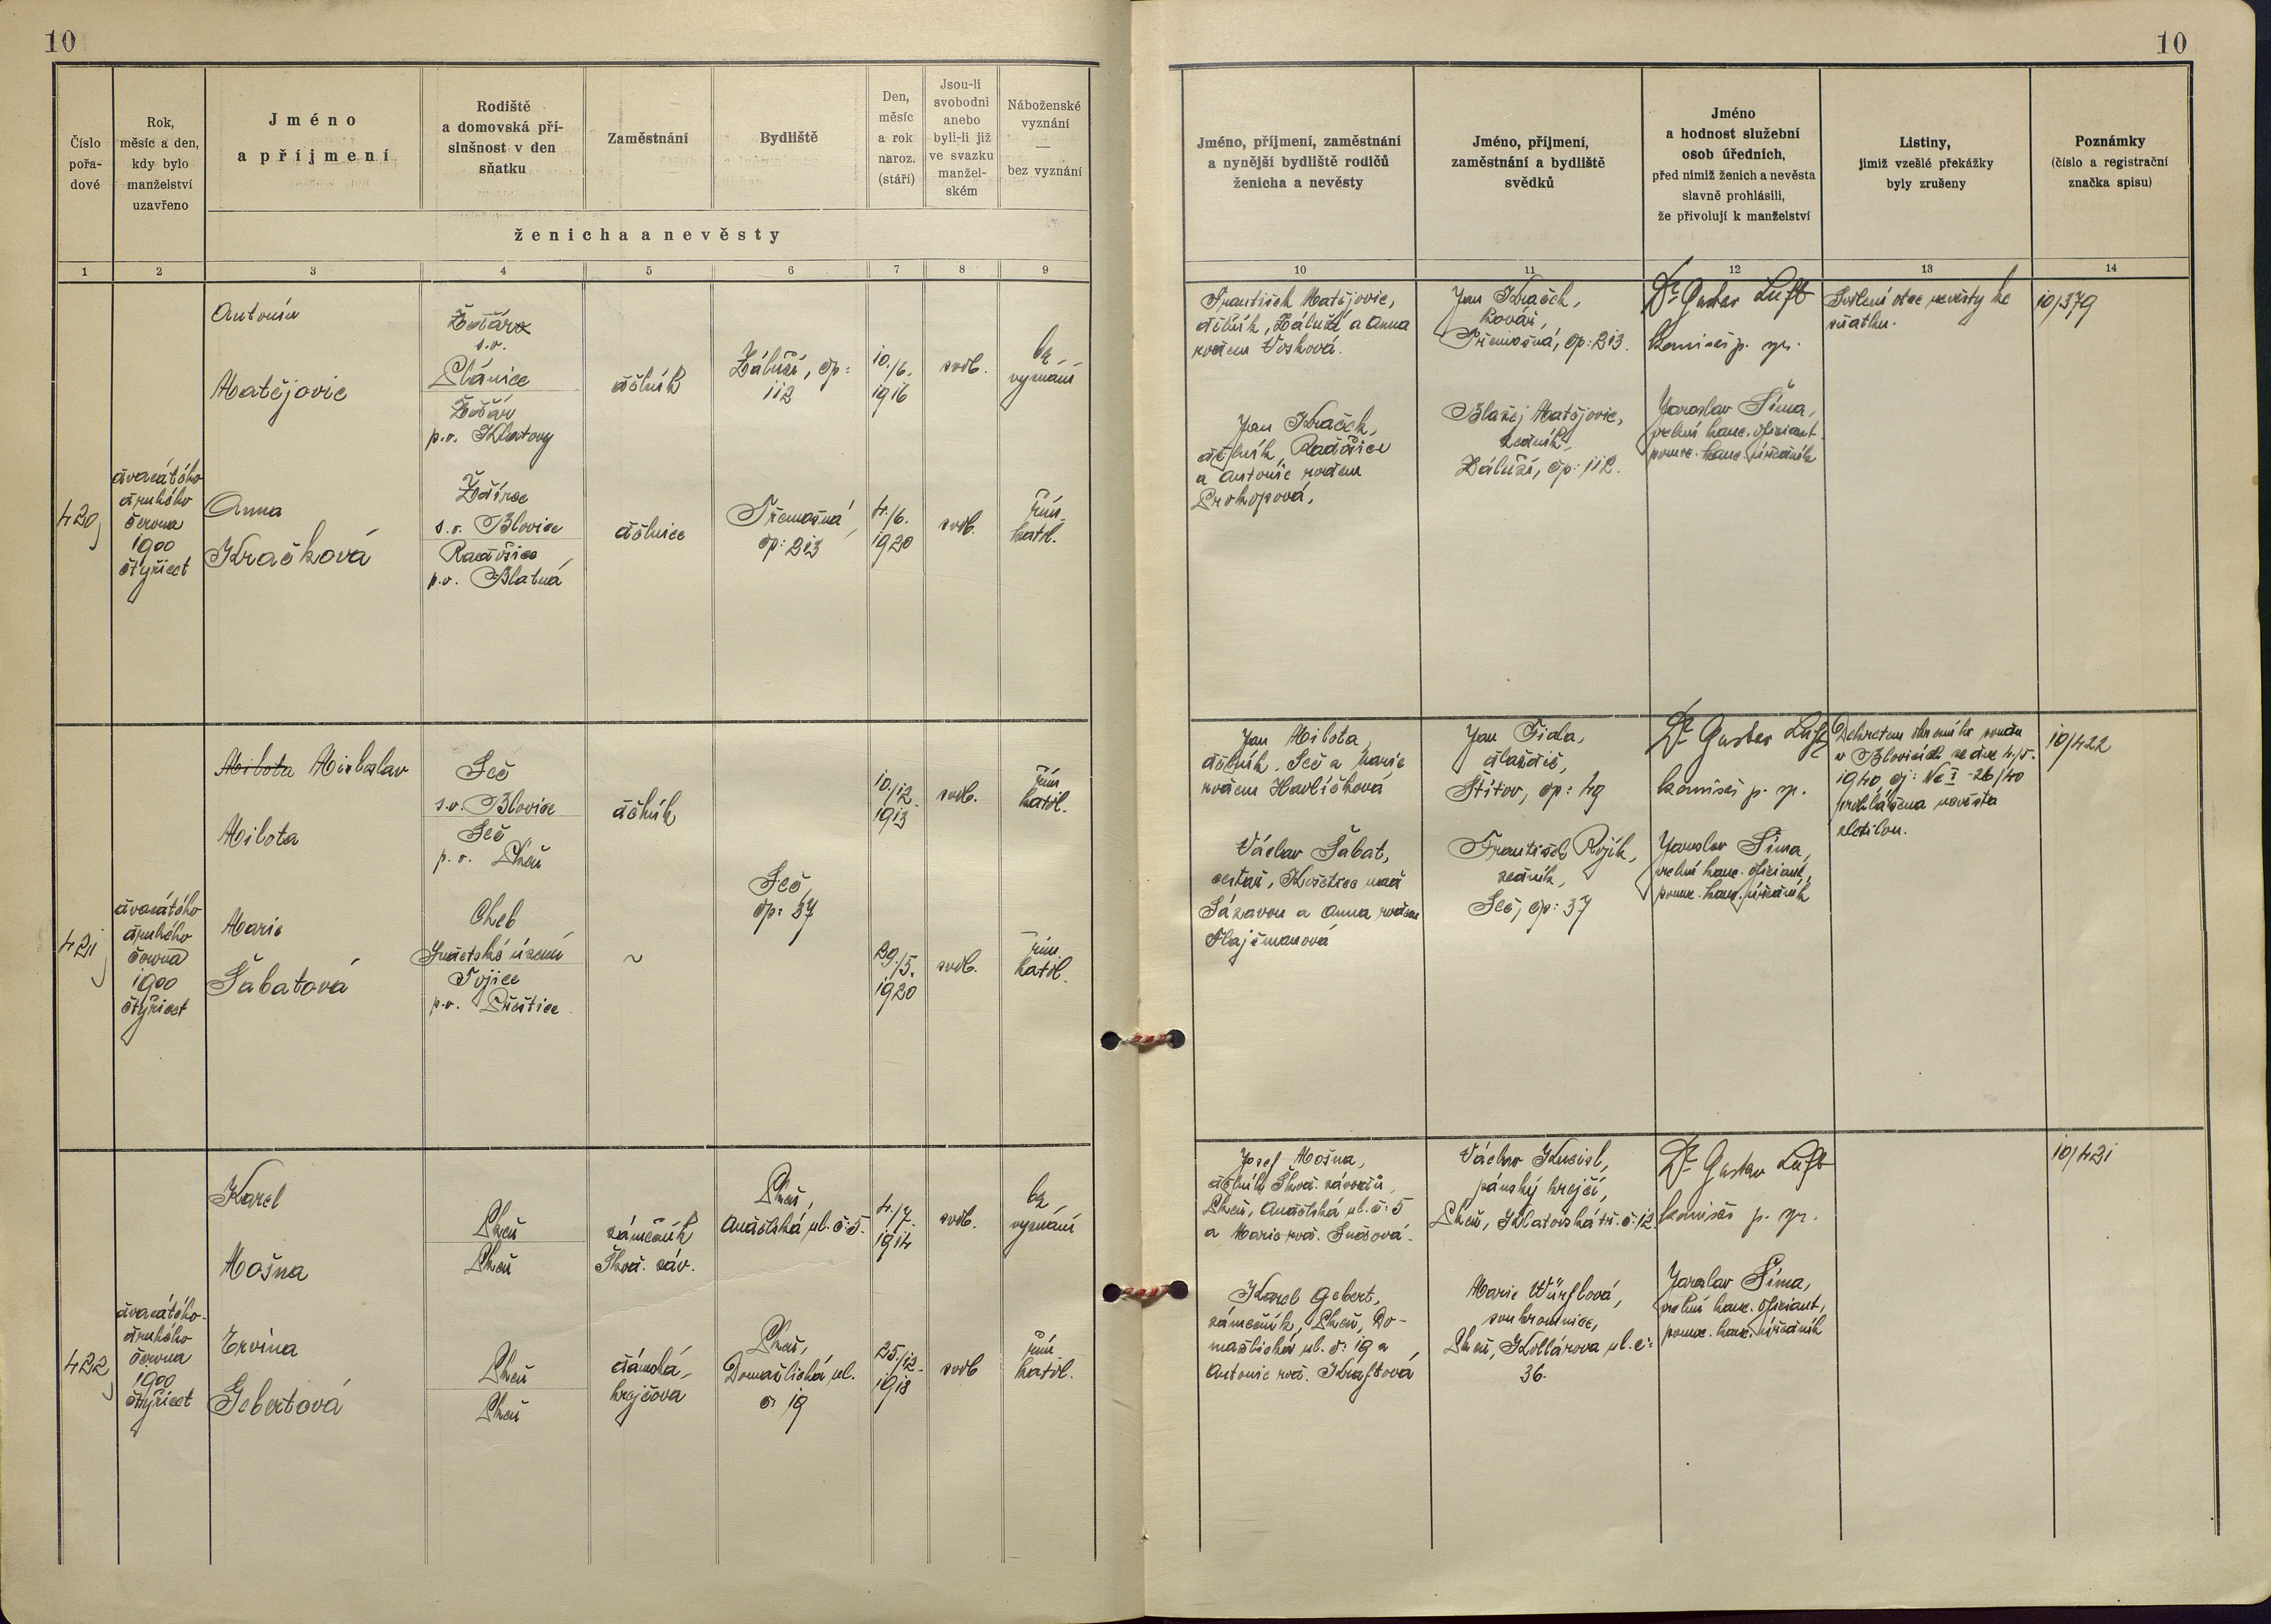 10
10
Číslo
pořa-
dové
Rok,
měsíc a den,
kdy bylo
manželství
uzavřeno
Jméno
a příjmení
Rodiště
a domovská pří-
slušnost v den
sňatku
Zaměstnání
Bydliště
Den,
měsíc
a rok
naroz.
(stáří)
Jsou-li
svobodni
anebo
byli-li již
ve svazku
manžel-
ském
Náboženské
vyznání
—
bez vyznání
ženicha a nevěsty
Jméno, příjmení, zaměstnání
a nynější bydliště rodičů
ženicha a nevěsty
Jméno, příjmení,
zaměstnání a bydliště
svědků
Jméno
a hodnost služební
osob úředních,
před nimiž ženich a nevěsta
slavně prohlásili,
že přivolují k manželství
Listiny,
jimiž vzešlé překážky
byly zrušeny
Poznámky
(číslo a registrační
značka spisu)
1 2 3 4 5 6 7 8 9
10 11 12 13 14
420
dvacátého
druhého
června
1900
čtyřicet
Antonín
Matějovic
Žďár
s.o.
Plánice
Žďár
p.o. Klatovy
dělník
Záluží, čp:
112
10./6.
1916
svob.
bez
vyznání
Anna
Kračková
Ždírec
s.o. Blovice
Radošice
p.o. Blatná
dělnice
Třemošná,
čp: 213
4./6.
1920
svob.
řím.
katol.
František Matějovic,
dělník, Záluží a Anna
rodem Vosková.
Jan Kraček,
dělník, Radošice
a Antonie rodem
Prokopová,
Jan Kraček,
kovář,
Třemošná, čp: 213.
Blažej Matějovic,
zedník,
Záluží, čp: 112.
Dr Gustav Luft
komisař p. spr.
Jaroslav Šíma,
velní kanc. oficiant
pomoc. kanc. úředník
Svolení otce nevěsty ke
sňatku.
10/379
421
dvacátého
druhého
června
1900
čtyřicet
Milota Miroslav
Milota
Seč
s.o. Blovice
Seč
p.o. Plzeň
dělník
10./12.
1913
svob.
řím
katol.
Seč,
čp: 37
Marie
Šabatová
Cheb
Sudetské území
Tojice
p.o. Přeštice
~
29./5.
1920
svob.
řím.
katol.
Jan Milota,
dělník, Seč a Marie
rodem Havlíčková
Václav Šabat,
cestář, Košetice nad
Sázavou a Anna rodem
Hajšmanová
Jan Fiala,
dlaždič,
Štítov, čp: 49
František Rojík,
zedník,
Seč, čp: 37
Dr Gustav Luft
komisař p. spr.
Jaroslav Šíma,
velní kanc. oficiant,
pomoc. kanc. úředník
Dekretem okresního soudu
v Blovicích ze dne 4/5.
1940, čj: Nc I -26/40
prohlášena nevěsta
zletilou.
10/422
422
dvacátého
druhého
června
1900
čtyřicet
Karel
Mošna
Plzeň
Plzeň
zámečník
Škod. záv.
Plzeň,
Anděl​ská ul. č: 5.
4./7.
1914
svob.
bez
vyznání
Ervina
Gebertová
Plzeň
Plzeň
dámská
krejčová
Plzeň,
Domažlická ul.
č: 19
25./12.
1918
svob
řím.
katol.
Josef Mošna,
dělník Škod. závodů,
Plzeň, Andělská ul. č: 5
a Marie rod. Sudová.
Karel Gebert,
zámečník, Plzeň, Do-
mažlická ul. č: 19 a
Antonie rod. Kraftová
Václav Kreisl,
pánský krejčí,
Plzeň, Klatovská tř. č: 12
Marie Würflová,
soukromnice,
Plzeň, Kollárova ul. č:
36.
Dr Gustav Luft
komisař p. spr.
Jaroslav Šíma,
velní kanc. oficiant,
pomoc. kanc. úředník
10/421